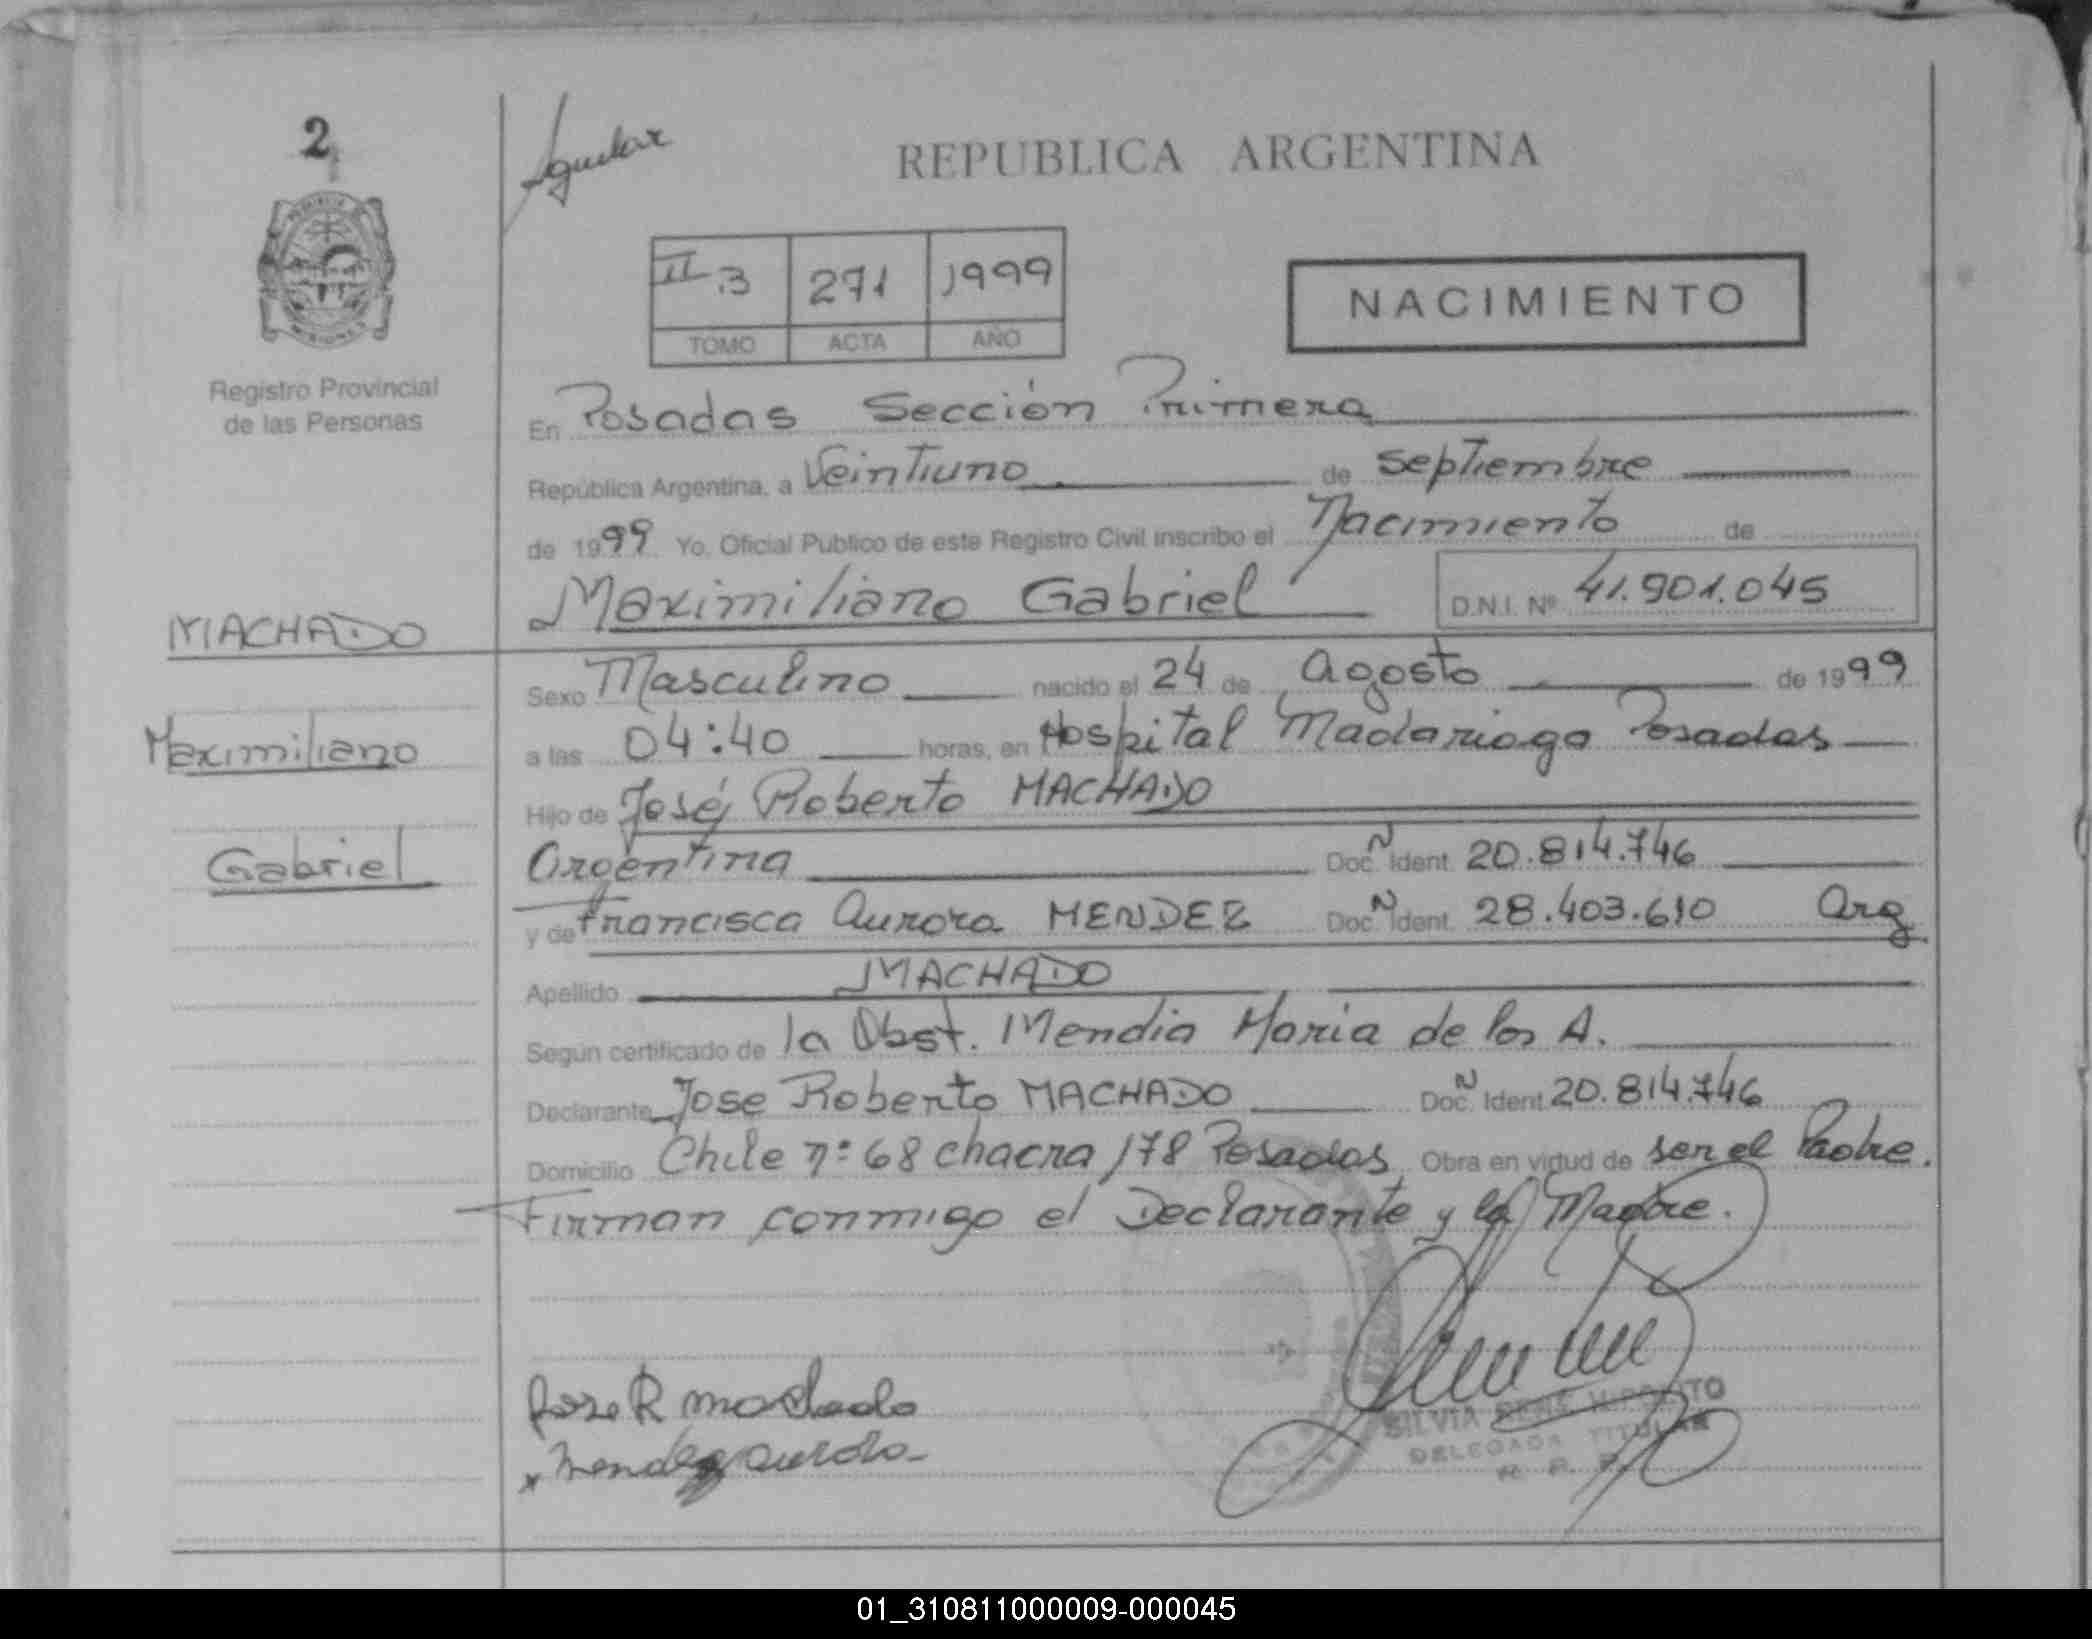 2
Aguilar
REPUBLICA ARGENTINA
II.3 271 1999
TOMO ACTA AÑO
NACIMIENTO
Registro Provincial
de las Personas
En Posadas Sección Primera
República Argentina, a Veintiuno de septiembre
de 1999 Yo, Oficial Publico de este Registro Civil inscribo el Nacimiento de
Maximiliano Gabriel D.N.I. Nº 41.901.045
MACHADO
Maximiliano
Gabriel
Sexo Masculino nacido el 24 de Agosto de 1999
a las 04:40 horas, en Hospital Madariaga Posadas
Hijo de José Roberto MACHADO
Argentina Doc. N Ident. 20.814.746
y de Francisca Aurora MENDEZ Doc. N Ident. 28.403.610 Arg.
Apellido MACHADO
Según certificado de la Obst. Mendia Maria de los A.
Declarante Jose Roberto MACHADO Doc. N Ident. 20.814.746
Domicilio Chile nº 68 chacra 178 Posadas Obra en virtud de ser el Padre.
Firman conmigo el Declarante y la Madre.
Jose R machado
x Mendez aurora
SILVIA RENE HIPOLITO
DELEGADA TITULAR
R. P. P.
01_310811000009-000045